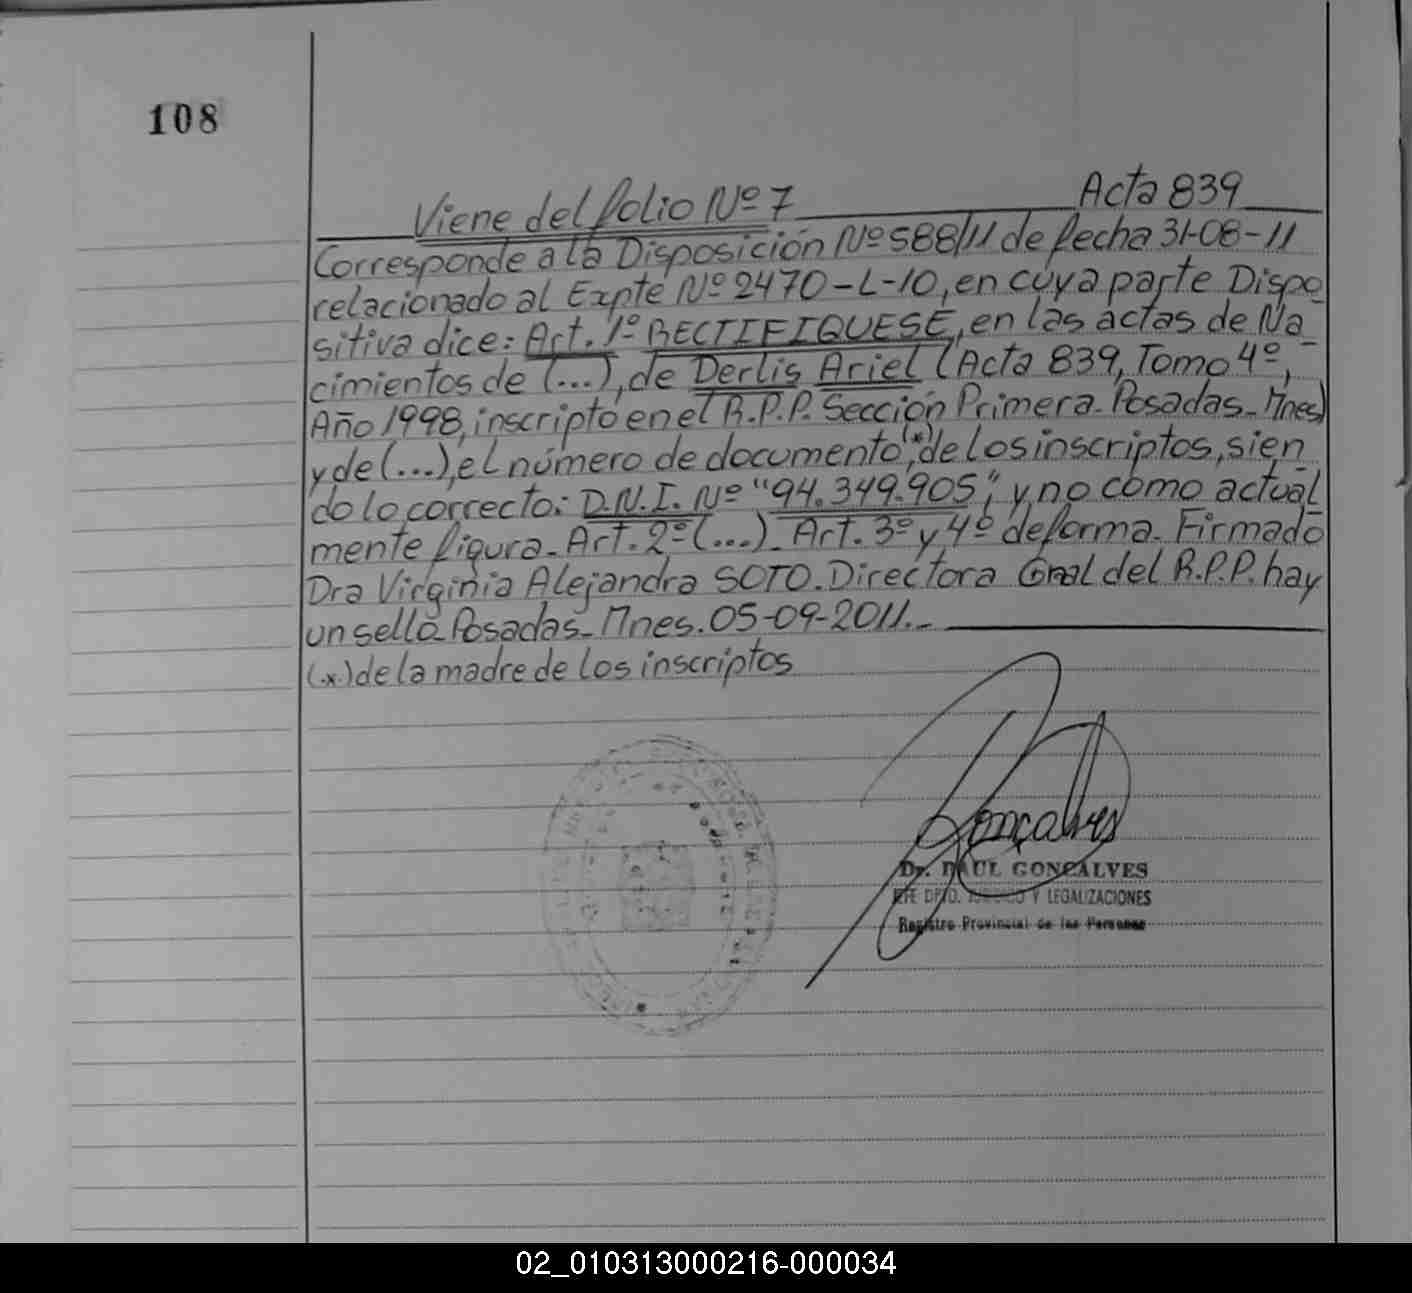 108
Viene del folio Nº 7 Acta 839
Corresponde a la Disposición Nº 588/11 de fecha 31-08-11
relacionado al Expte Nº 2470-L-10, en cuya parte Dispo
sitiva dice: Art. 1º RECTIFIQUESE, en las actas de Na
cimientos de (...), de Derlis Ariel (Acta 839, Tomo 4º,
Año 1998, inscripto en el R.P.P. Sección Primera-Posadas-Mnes)
y de (...), el número de documento (*), de los inscriptos, sien
do lo correcto: D.N.I. Nº "94.349.905", y no como actual
mente figura-Art. 2º (...)-Art. 3º y 4º de forma-Firmado
Dra Virginia Alejandra SOTO. Directora Gral del R.P.P. hay
un sello-Posadas-Mnes. 05-09-2011.-
(*) de la madre de los inscriptos
Gonçalves
Dr. RAUL GONCALVES
JEFE DPTO. JURIDICO Y LEGALIZACIONES
Registro Provincial de las Personas
02_010313000216-000034